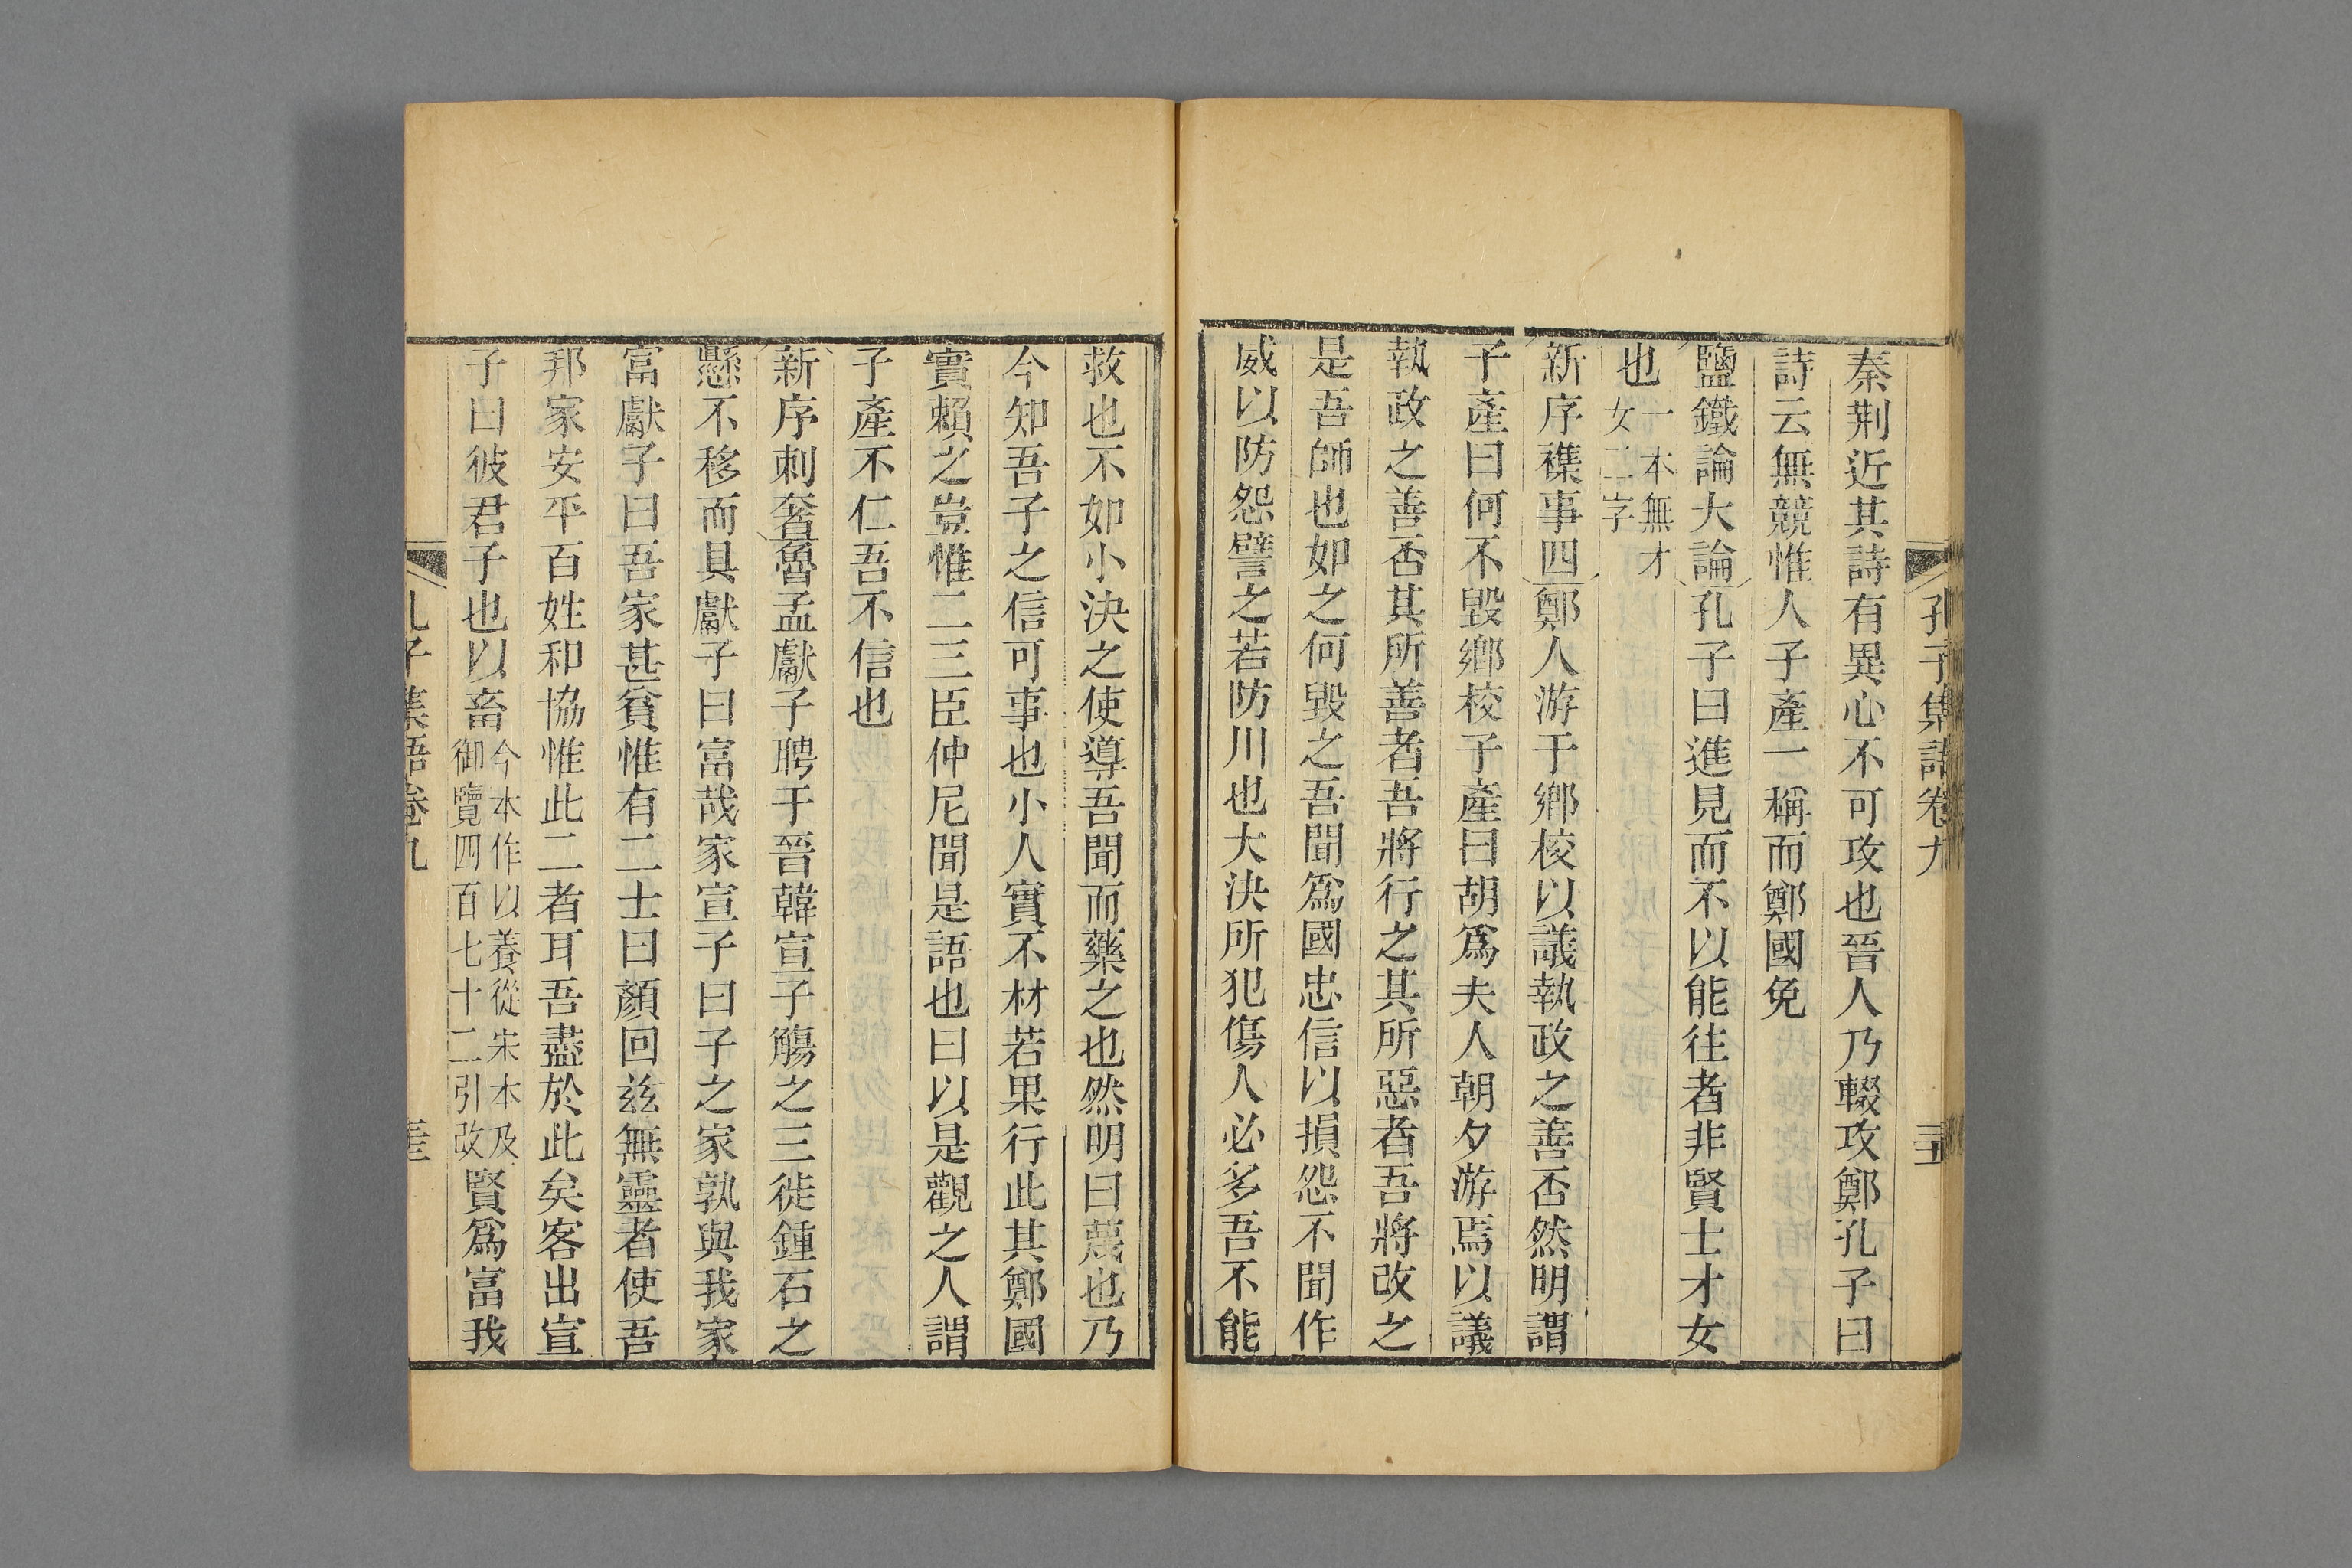 孔子集語卷九
秦荆近其詩有異心不可攻也晉人乃輟攻鄭孔子曰
詩云無競惟人子產一稱而鄭國免
鹽鐵論大論孔子曰進見而不以能往者非賢士才女
也一本無才女二字
新序襍事四鄭人游于鄉校以議執政之善否然明謂
子產曰何不毀鄉校子產曰胡爲夫人朝夕游焉以議
執政之善否其所善者吾將行之其所惡者吾將改之
是吾師也如之何毀之吾聞爲國忠信以損怨不聞作
威以防怨譬之若防川也大決所犯傷人必多吾不能
救也不如小決之使導吾聞而藥之也然明曰蔑也乃
今知吾子之信可事也小人實不材若果行此其鄭國
實賴之豈惟二三臣仲尼聞是語也曰以是觀之人謂
子產不仁吾不信也
新序刺奢魯孟獻子聘于晉韓宣子觴之三徙鍾石之
懸不移而具獻子曰富哉家宣子曰子之家孰與我家
富獻子曰吾家甚貧惟有二士曰顏回兹無靈者使吾
邦家安平百姓和協惟此二者耳吾盡於此矣客出宣
子曰彼君子也以畜今本作以養從宋本及御覽四百七十二引改賢爲富我
孔子集語卷九